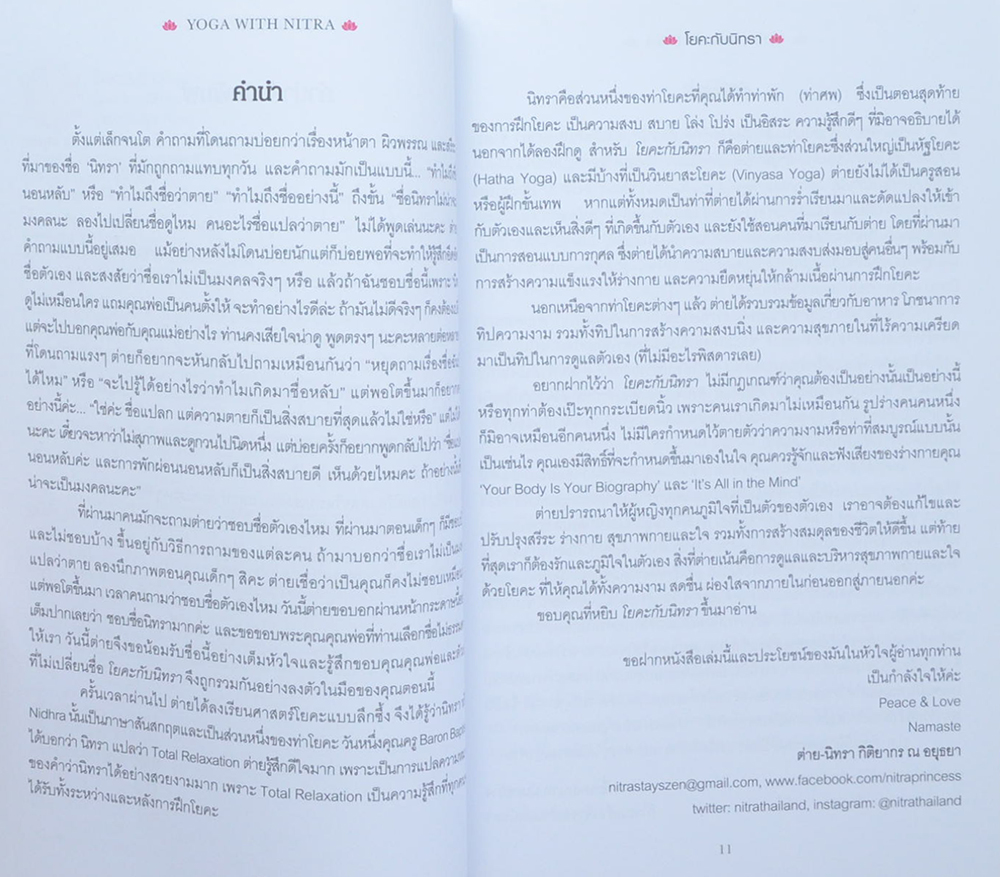 YOGA WITH NITRA
คำนำ
ตั้งแต่เล็กจนโต คำถามที่โดนถามบ่อยกว่าเรื่องหน้าตา ผิวพรรณ และ
ที่มาของชื่อ ‘นิทรา’ ที่มักถูกถามแทบทุกวัน และคำถามมักเป็นแบบนี้...
นอนหลับ” หรือ “ทำไมถึงชื่อว่าตาย” “ทำไมถึงชื่ออย่างนี้” ถึงขั้น “ชื่อนิทราไม่น่าจะ
มงคลนะ ลองไปเปลี่ยนชื่อดูไหม คนอะไรชื่อแปลว่าตาย” ไม่ได้พูดเล่นนะคะ
คำถามแบบนี้อยู่เสมอ แม้อย่างหลังไม่โดนบ่อยนักแต่ก็บ่อยพอที่จะทำให้รู้สึก
ชื่อตัวเอง และสงสัยว่าชื่อเราไม่เป็นมงคลจริงๆ หรือ แล้วถ้าฉันชอบชื่อนี้เพราะ
ดูไม่เหมือนใคร แถมคุณพ่อเป็นคนตั้งให้ จะทำอย่างไรดีล่ะ ถ้ามันไม่ดีจริงๆ ก็คงต้อง
แต่จะไปบอกคุณพ่อกับคุณแม่อย่างไร ท่านคงเสียใจน่าดู พูดตรงๆ นะคะหลายต่อหลาย
ที่โดนถามแรงๆ ต่ายก็อยากจะหันกลับไปถามเหมือนกันว่า “หยุดถามเรื่องชื่อ
ได้ไหม” หรือ “จะไปรู้ได้อย่างไรว่าทำไมเกิดมาชื่อหลับ” แต่พอโตขึ้นมาก็อยาก
อย่างนี้ค่ะ... “ใช่ค่ะ ชื่อแปลก แต่ความตายก็เป็นสิ่งสบายที่สุดแล้วไม่ใช่หรือ”
นะคะ เดี๋ยวจะหาว่าไม่สุภาพและดูกวนไปนิดหนึ่ง แต่บ่อยครั้งก็อยากพูดกลับไปว่า
นอนหลับค่ะ และการพักผ่อนนอนหลับก็เป็นสิ่งสบายดี เห็นด้วยไหมคะ ถ้าอย่างนั้น
น่าจะเป็นมงคลนะคะ”
ที่ผ่านมาคนมักจะถามต่ายว่าชอบชื่อตัวเองไหม ที่ผ่านมาตอนเด็กๆ ก็มี
และไม่ชอบบ้าง ขึ้นอยู่กับวิธีการถามของแต่ละคน ถ้ามาบอกว่าชื่อเราไม่เป็น
แปลว่าตาย ลองนึกภาพตอนคุณเด็กๆ สิคะ ต่ายเชื่อว่าเป็นคุณก็คงไม่ชอบเหมือน
แต่พอโตขึ้นมา เวลาคนถามว่าชอบชื่อตัวเองไหม วันนี้ต่ายขอบอกผ่านหน้ากระดาษ
เต็มปากเลยว่า ชอบชื่อนิทรามากค่ะ และขอขอบพระคุณคุณพ่อที่ท่านเลือกชื่อไม่
ให้เรา วันนี้ต่ายจึงขอน้อมรับชื่อนี้อย่างเต็มหัวใจและรู้สึกขอบคุณคุณพ่อและ
ที่ไม่เปลี่ยนชื่อ โยคะกับนิทรา จึงถูกรวมกันอย่างลงตัวในมือของคุณตอนนี้
ครั้นเวลาผ่านไป ต่ายได้ลงเรียนศาสตร์โยคะแบบลึกซึ้ง จึงได้รู้ว่านิทรา
Nidhra นั้นเป็นภาษาสันสกฤตและเป็นส่วนหนึ่งของท่าโยคะ วันหนึ่งคุณครู Baron
ได้บอกว่า นิทรา แปลว่า Total Relaxation ต่ายรู้สึกดีใจมาก เพราะเป็นการแปล
ของคำว่านิทราได้อย่างสวยงามมาก เพราะ Total Relaxation เป็นความรู้สึกที่
ได้รับทั้งระหว่างและหลังการฝึกโยคะ
โยคะกับนิทรา
นิทราคือส่วนหนึ่งของท่าโยคะที่คุณได้ทำท่าพัก (ท่าศพ) ซึ่งเป็นตอนสุดท้าย
ของการฝึกโยคะ เป็นความสงบ สบาย โล่ง โปร่ง เป็นอิสระ ความรู้สึกดีๆ ที่มิอาจอธิบายได้
นอกจากได้ลองฝึกดู สำหรับ โยคะกับนิทรา ก็คือต่ายและท่าโยคะซึ่งส่วนใหญ่เป็นหัฐโยคะ
(Hatha Yoga) และมีบ้างที่เป็นวินยาสะโยคะ (Vinyasa Yoga) ต่ายยังไม่ได้เป็นครูสอน
หรือผู้ฝึกขั้นเทพ หากแต่ทั้งหมดเป็นท่าที่ต่ายได้ผ่านการร่ำเรียนมาและดัดแปลงให้เข้า
กับตัวเองและเห็นสิ่งดีๆ ที่เกิดขึ้นกับตัวเอง และยังใช้สอนคนที่มาเรียนกับต่าย โดยที่ผ่านมา
เป็นการสอนแบบการกุศล ซึ่งต่ายได้นำความสบายและความสงบส่งมอบสู่คนอื่นๆ พร้อมกับ
การสร้างความแข็งแรงให้ร่างกาย และความยืดหยุ่นให้กล้ามเนื้อผ่านการฝึกโยคะ
นอกเหนือจากท่าโยคะต่างๆ แล้ว ต่ายได้รวบรวมข้อมูลเกี่ยวกับอาหาร โภชนาการ
ทิปความงาม รวมทั้งทิปในการสร้างความสงบนิ่ง และความสุขภายในที่ไร้ความเครียด
มาเป็นทิปในการดูแลตัวเอง (ที่ไม่มีอะไรพิสดารเลย)
อยากฝากไว้ว่า โยคะกับนิทรา ไม่มีกฎเกณฑ์ว่าคุณต้องเป็นอย่างนั้นเป็นอย่างนี้
หรือทุกท่าต้องเป๊ะทุกกระเบียดนิ้ว เพราะคนเราเกิดมาไม่เหมือนกัน รูปร่างคนคนหนึ่ง
ก็มิอาจเหมือนอีกคนหนึ่ง ไม่มีใครกำหนดไว้ตายตัวว่าความงามหรือท่าที่สมบูรณ์แบบนั้น
เป็นเช่นไร คุณเองมีสิทธิ์ที่จะกำหนดขึ้นมาเองในใจ คุณควรรู้จักและฟังเสียงของร่างกายคุณ
‘Your Body Is Your Biography’ และ ‘It’s All in the Mind’
ต่ายปรารถนาให้ผู้หญิงทุกคนภูมิใจที่เป็นตัวของตัวเอง เราอาจต้องแก้ไขและ
ปรับปรุงสรีระ ร่างกาย สุขภาพกายและใจ รวมทั้งการสร้างสมดุลของชีวิตให้ดีขึ้น แต่ท้าย
ที่สุดเราก็ต้องรักและภูมิใจในตัวเอง สิ่งที่ต่ายเน้นคือการดูแลและบริหารสุขภาพกายและใจ
ด้วยโยคะ ที่ให้คุณได้ทั้งความงาม สดชื่น ผ่องใสจากภายในก่อนออกสู่ภายนอกค่ะ
ขอบคุณที่หยิบ โยคะกับนิทรา ขึ้นมาอ่าน
ขอฝากหนังสือเล่มนี้และประโยชน์ของมันในหัวใจผู้อ่านทุกท่าน
เป็นกำลังใจให้ค่ะ
Peace & Love
Namaste
ต่าย-นิทรา กิติยากร ณ อยุธยา
nitrastayszen@gmail.com, www.facebook.com/nitraprincess
twitter: nitrathailand, instagram: @nitrathailand
11